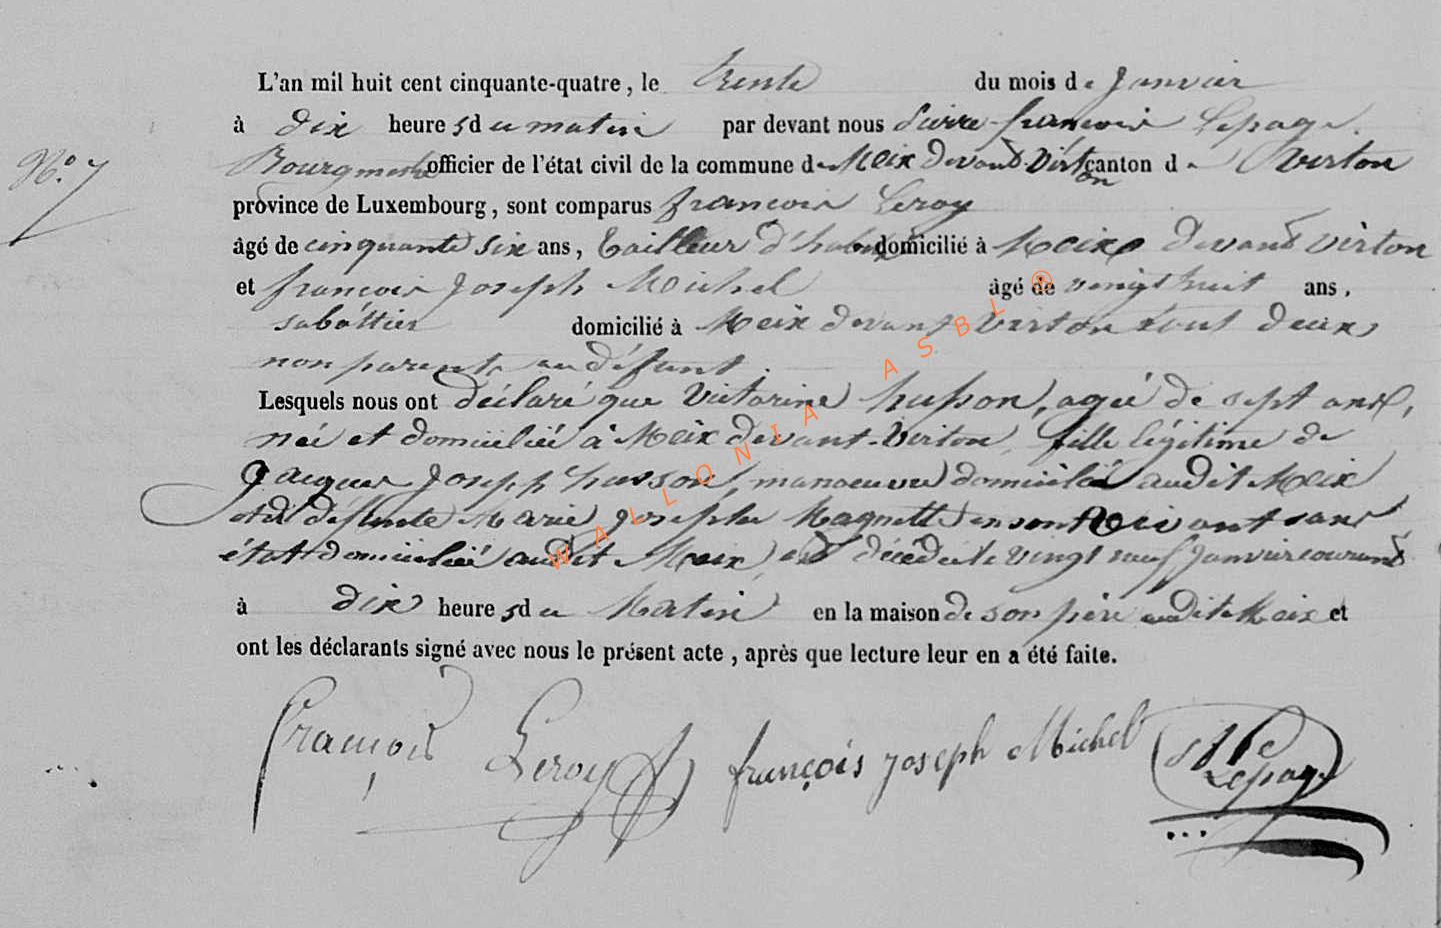 L'an mil huit cent cinquante-quatre, le trente du mois de Janvier
à dix heures du matin par devant nous Pierre françois Lepage.
N.° 7
Bourgmestre officier de l'état civil de la commune de Meix devant Virton canton de Virton
province de Luxembourg, sont comparus françois Leroy
âgé de cinquante six ans, tailleur d'habit domicilié à Meix devant virton
et françois Joseph Michel âgé de vingt huit ans,
sabottier domicilié à Meix devant Virton tout deux
non parents au défunt.
Lesquels nous ont déclaré que Victorine husson, agée de sept ans,
née et domiciliée à Meix devant-Virton, fille légitime de
Jacques Joseph husson, manoeuvre domicilié audit Meix
et de défunte Marie Josephe Maquette en son vivant sans
état domiciliée audit Meix, est décédée le vingt neuf Janvier courant
à dix heures du Matin en la maison de son père audit Meix et
ont les déclarants signé avec nous le présent acte, après que lecture leur en a été faite.
françois Leroy françois joseph Michel Lepage
WALLONIA ASBL ®